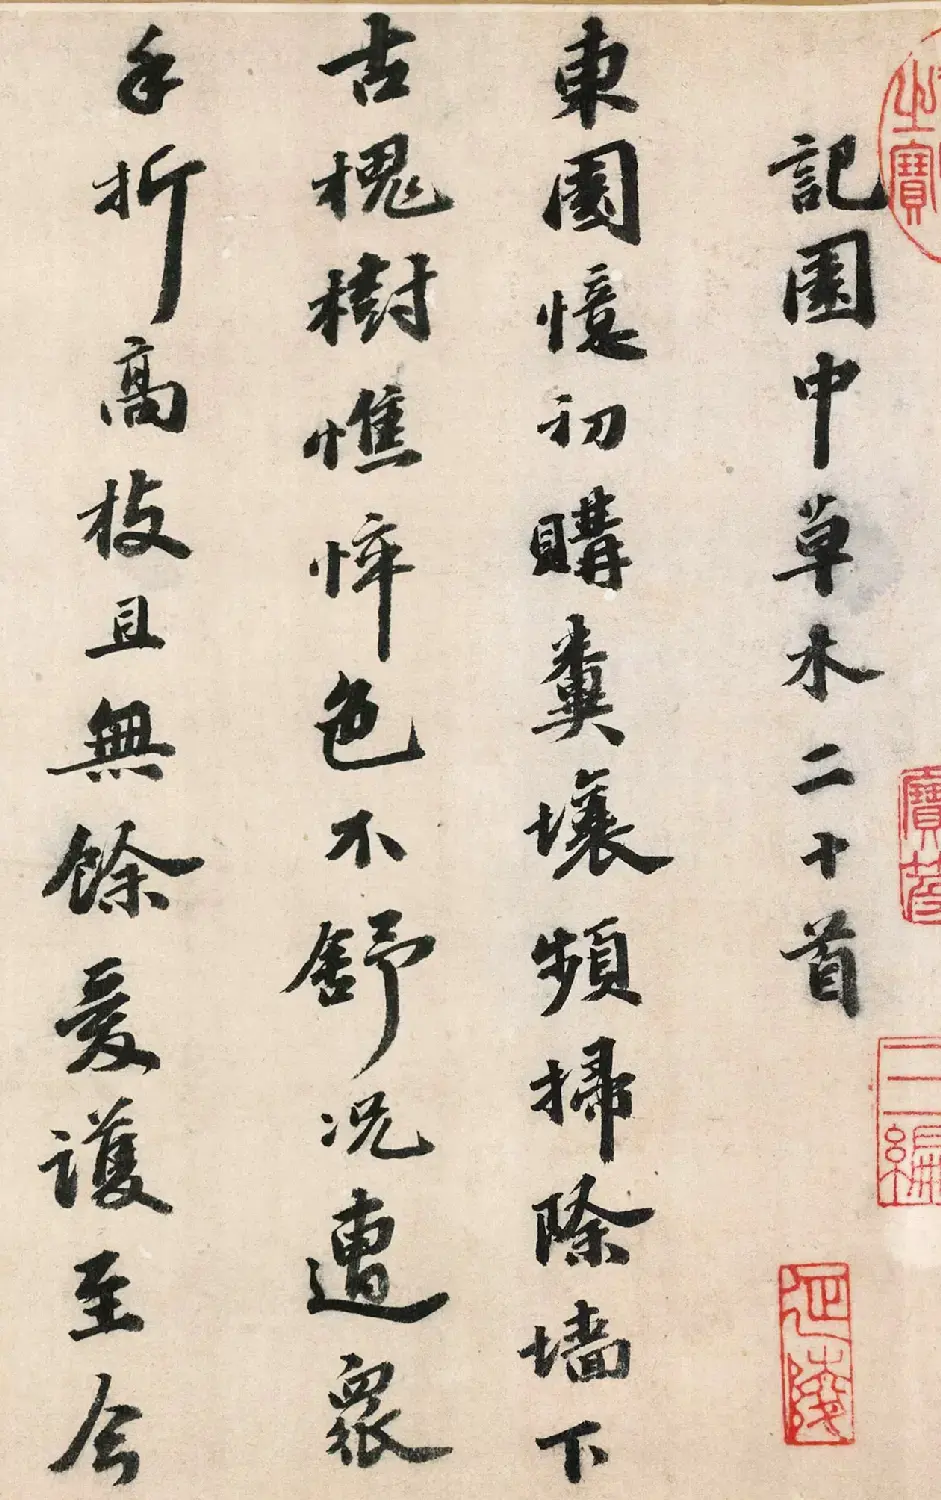 記園中草木二十首
東園憶初購糞壤頻掃除墻下
古槐樹憔悴色不舒況遭眾
手折高枝且無餘愛護至今
之寶
二編